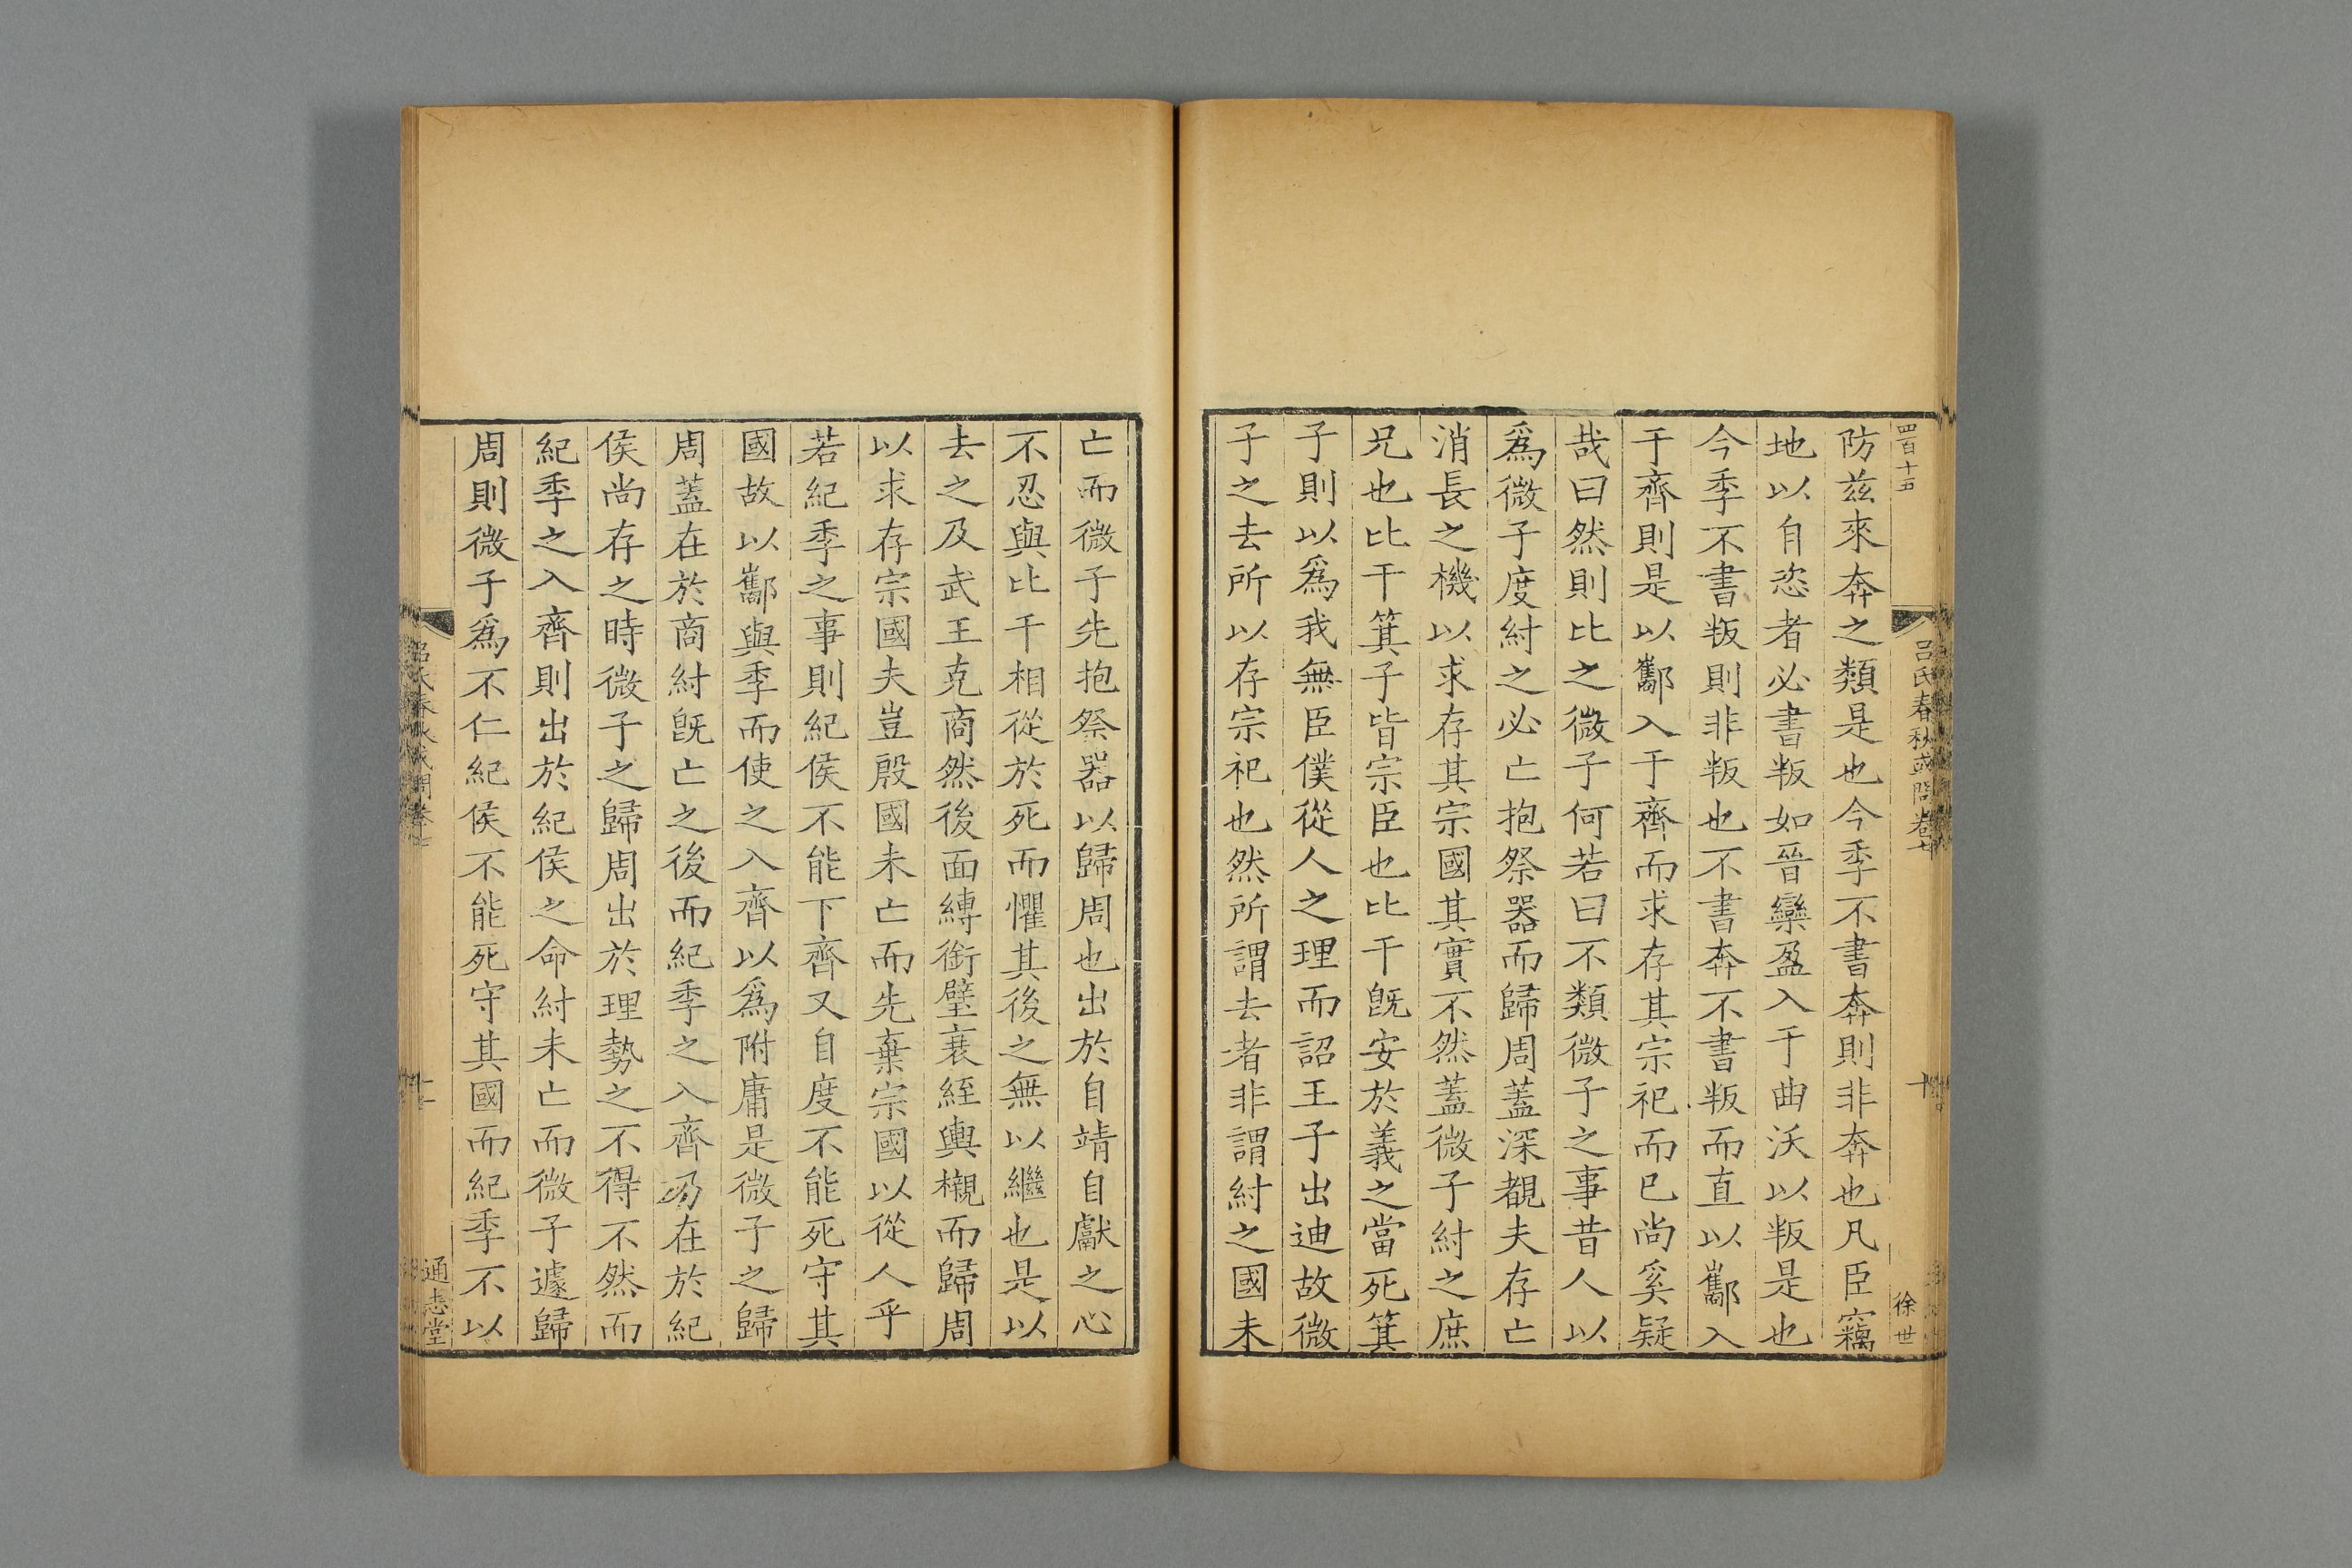 四百十五
呂氏春秋或問卷七
十
徐世
防兹來奔之類是也今季不書奔則非奔也凡臣竊
地以自恣者必書叛如晉欒盈入于曲沃以叛是也
今季不書叛則非叛也不書奔不書叛而直以酅入
于齊則是以酅入于齊而求存其宗祀而已尚奚疑
哉曰然則比之微子何若曰不類微子之事昔人以
爲微子度紂之必亡抱祭器而歸周蓋深覩夫存亡
消長之機以求存其宗國其實不然蓋微子紂之庶
兄也比干箕子皆宗臣也比干旣安於義之當死箕
子則以爲我無臣僕從人之理而詔王子出迪故微
子之去所以存宗祀也然所謂去者非謂紂之國未
亡而微子先抱祭器以歸周也出於自靖自獻之心
不忍與比干相從於死而懼其後之無以繼也是以
去之及武王克商然後面縛銜璧衰絰輿櫬而歸周
以求存宗國夫豈殷國未亡而先棄宗國以從人乎
若紀季之事則紀侯不能下齊又自度不能死守其
國故以酅與季而使之入齊以爲附庸是微子之歸
周蓋在於商紂旣亡之後而紀季之入齊乃在於紀
侯尚存之時微子之歸周出於理勢之不得不然而
紀季之入齊則出於紀侯之命紂未亡而微子遽歸
周則微子爲不仁紀侯不能死守其國而紀季不以
通志堂